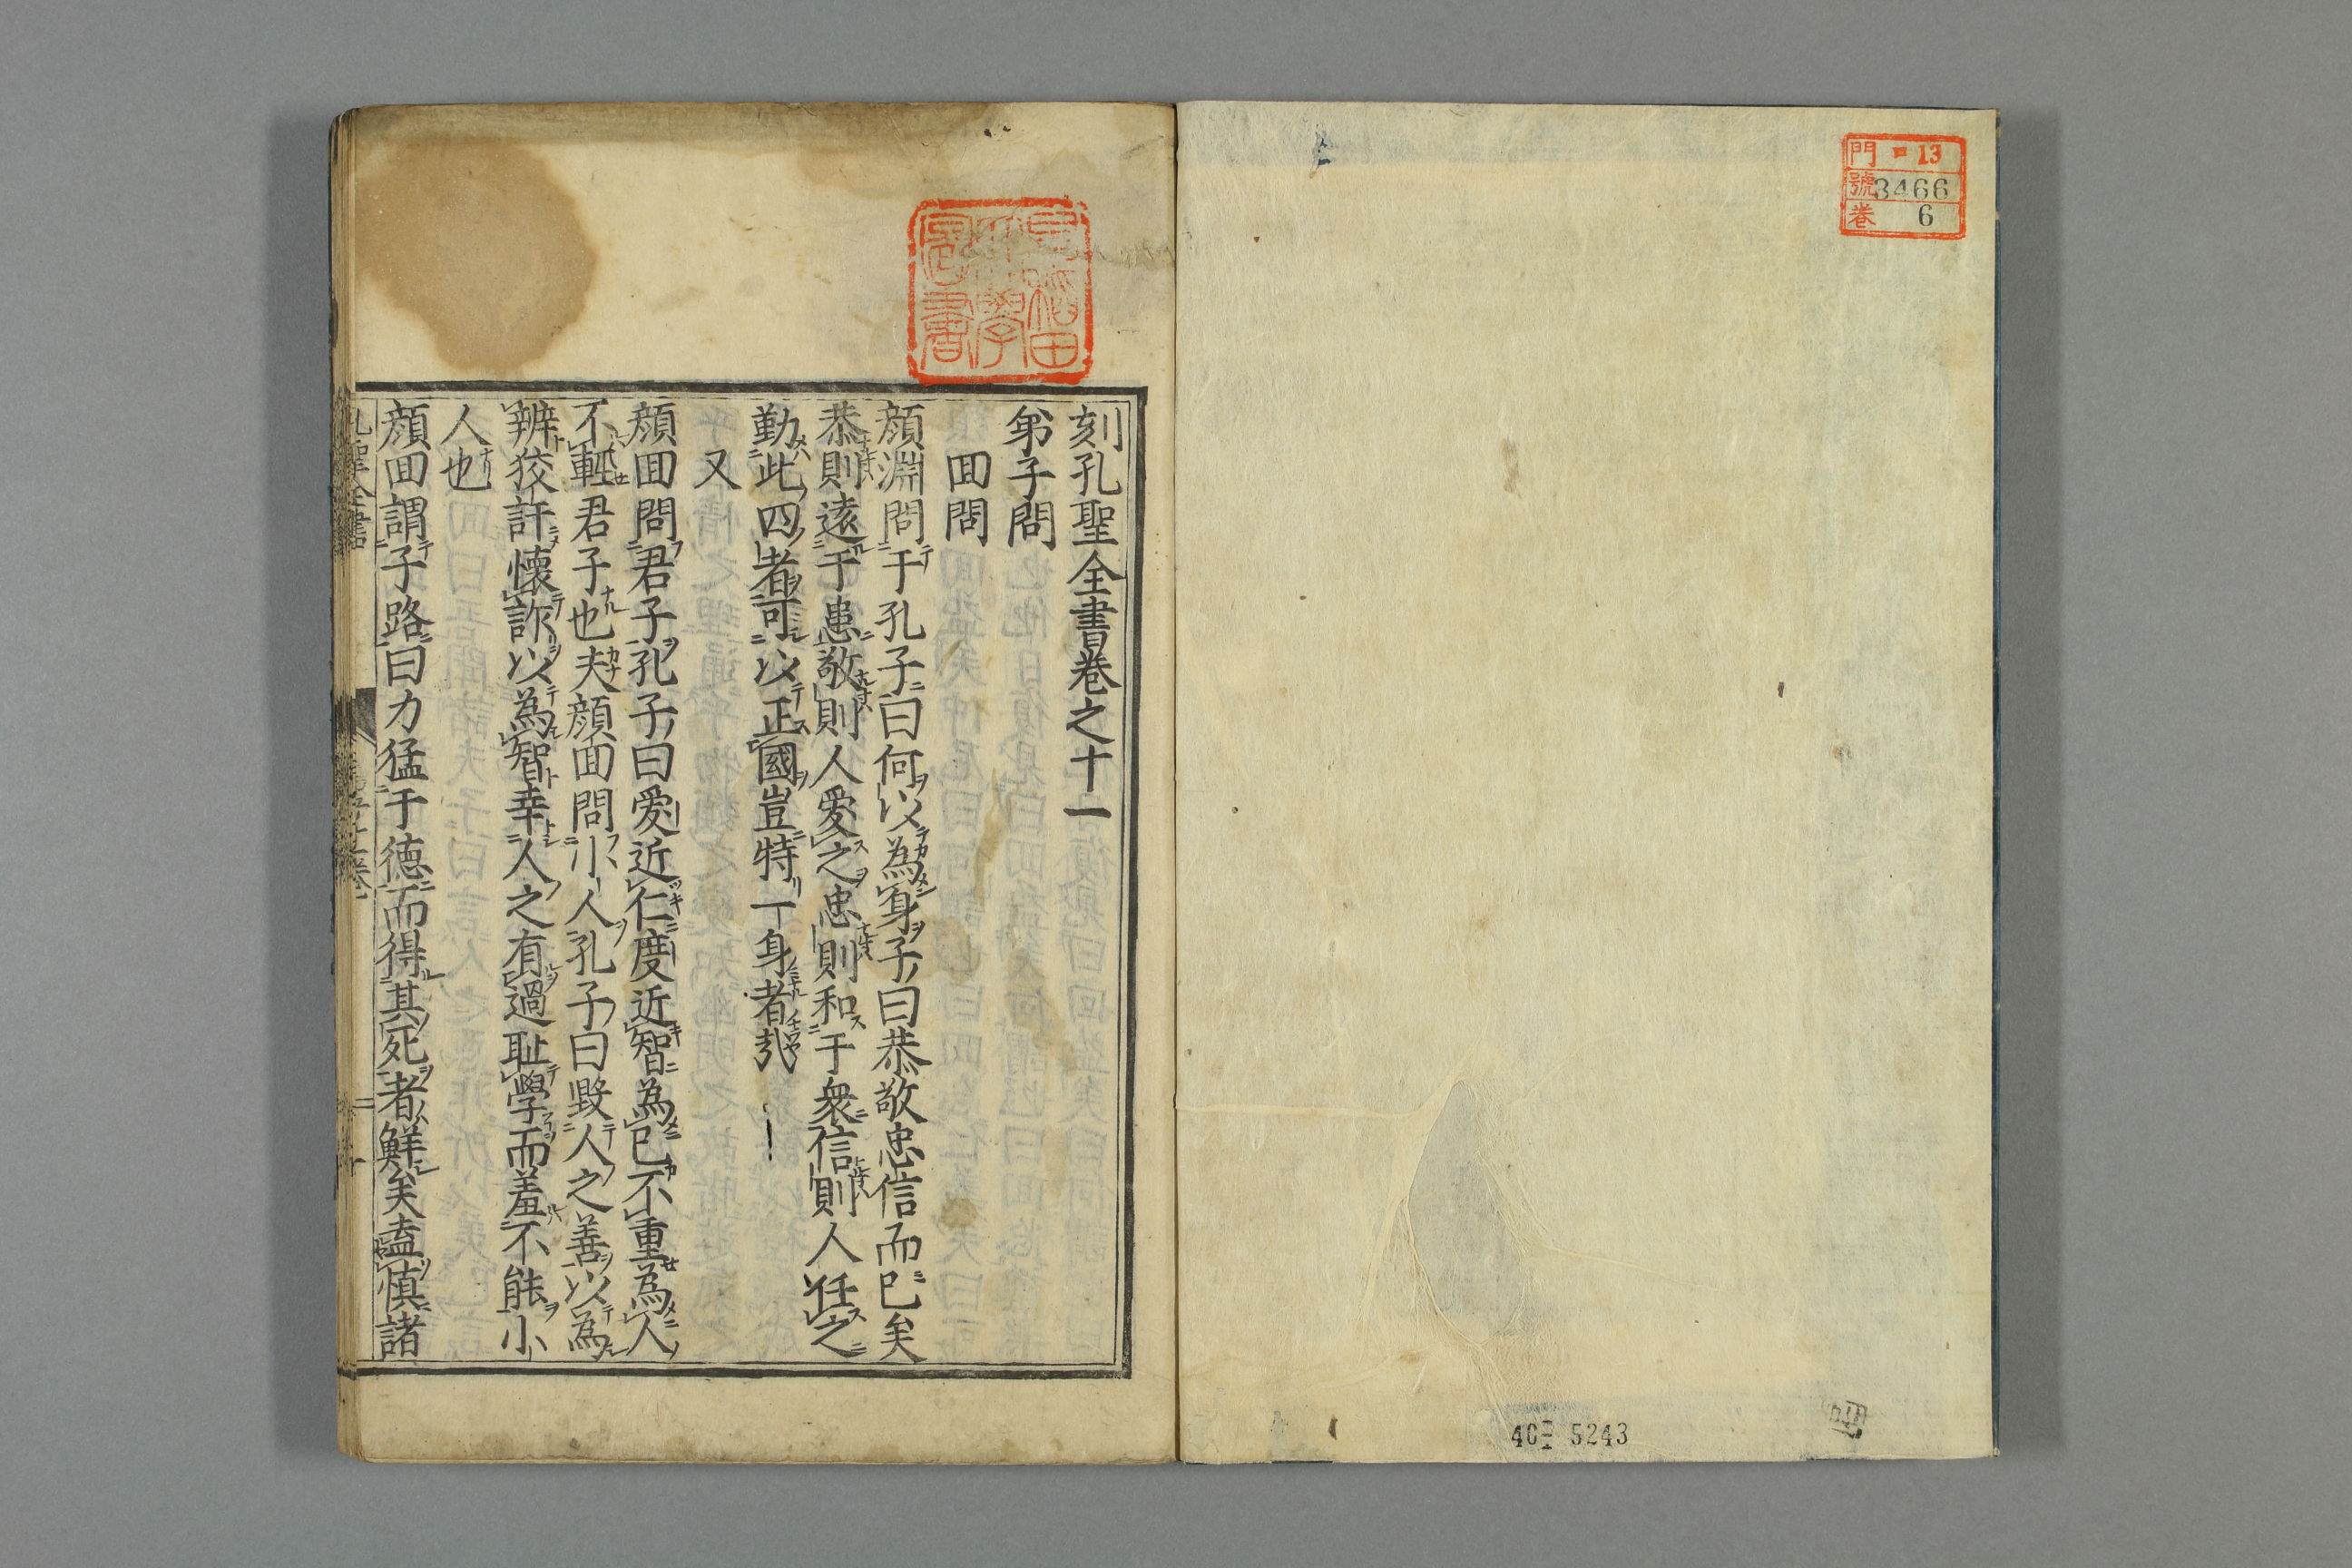 門 ロ 13
號 3466
巻 6
早稲田
大學
圖書
刻孔聖全書巻之十一
弟子問
囬問
顔淵問于孔子曰何以為身子曰恭敬忠信而已矣
恭則遠于患敬則人愛之忠則和于衆信則人任之
勤此四者可以正國豈特一身者哉
又
顔囬問君子孔子曰愛近仁度近智為己不重為人
不輕君子也夫顔囬問小人孔子曰毀人之善以為
辨狡訐懐詐以為智幸人之有過耻學而羞不能小
人也
顔囬謂子路曰力猛于德而得其死者鮮矣盍慎諸
孔聖全書
40-1 5243